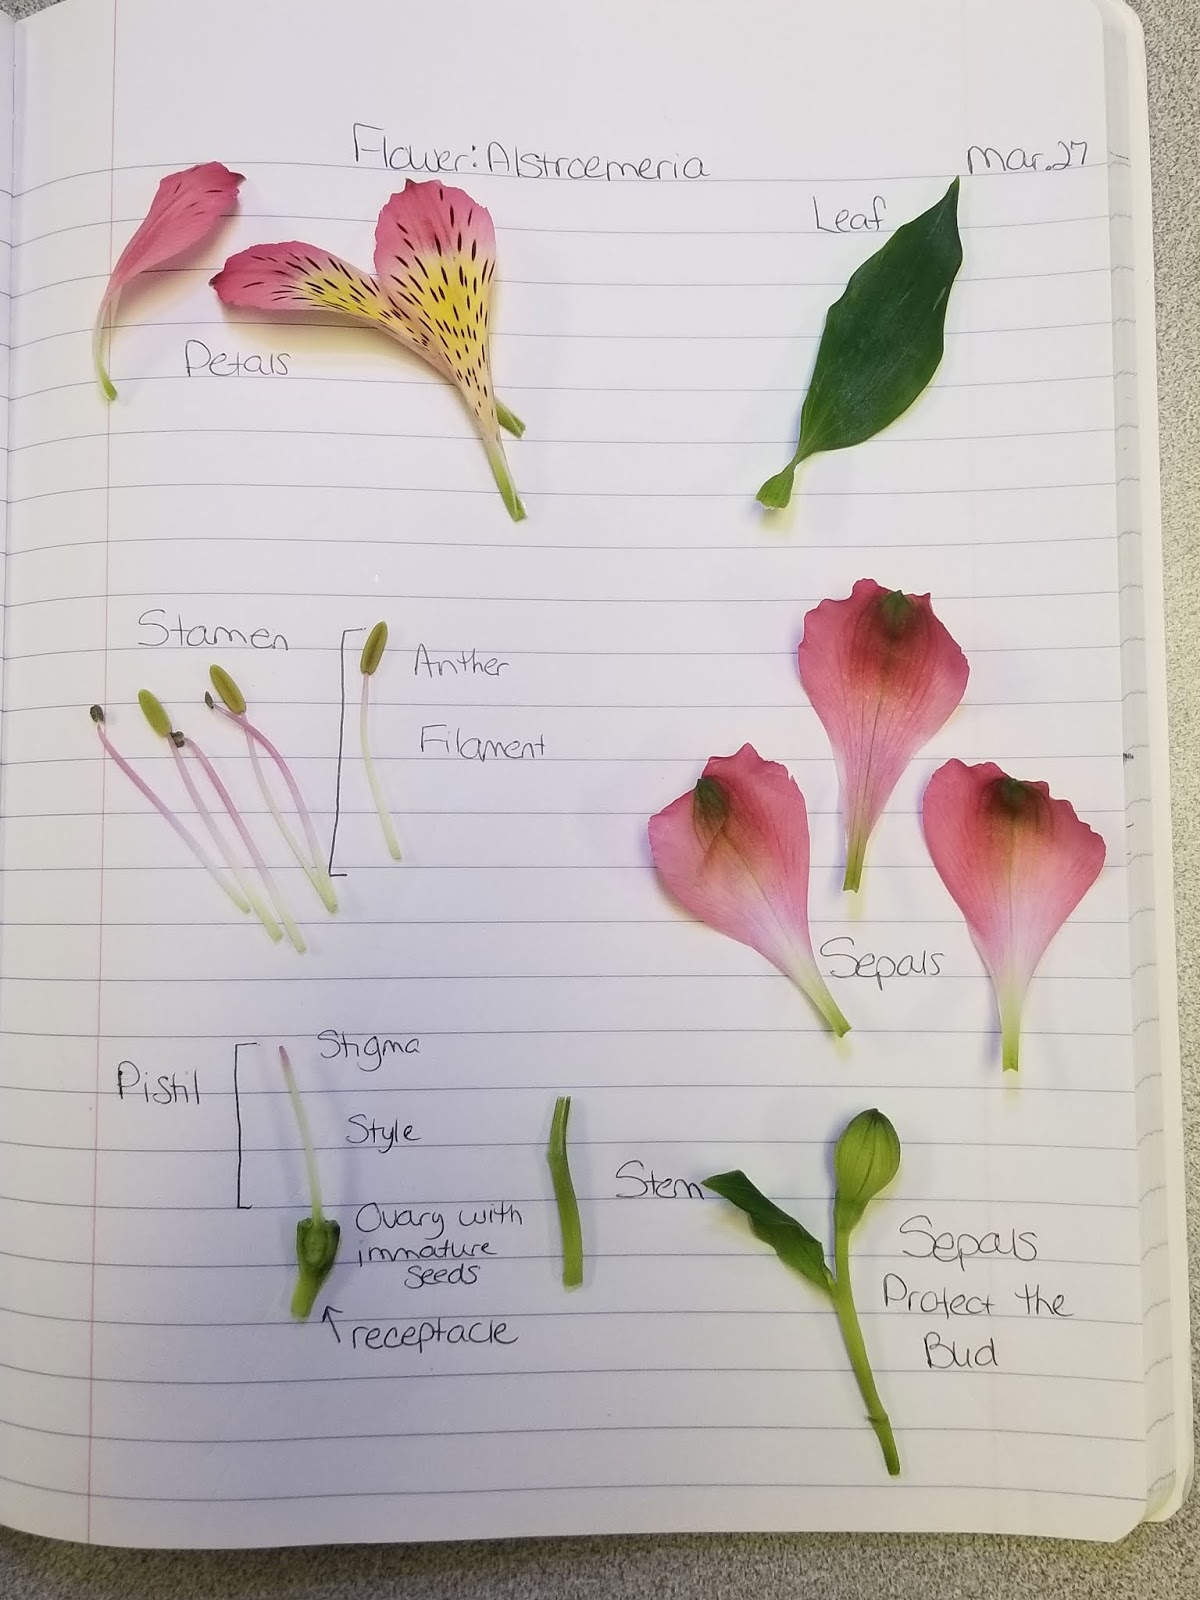 Flower: Alstroemeria
Mar. 27
Leaf
Petals
Stamen
Anther
Filament
Sepals
Pistil
Stigma
Style
Ovary with
immature
seeds
receptacle
Stem
Sepals
Protect the
Bud